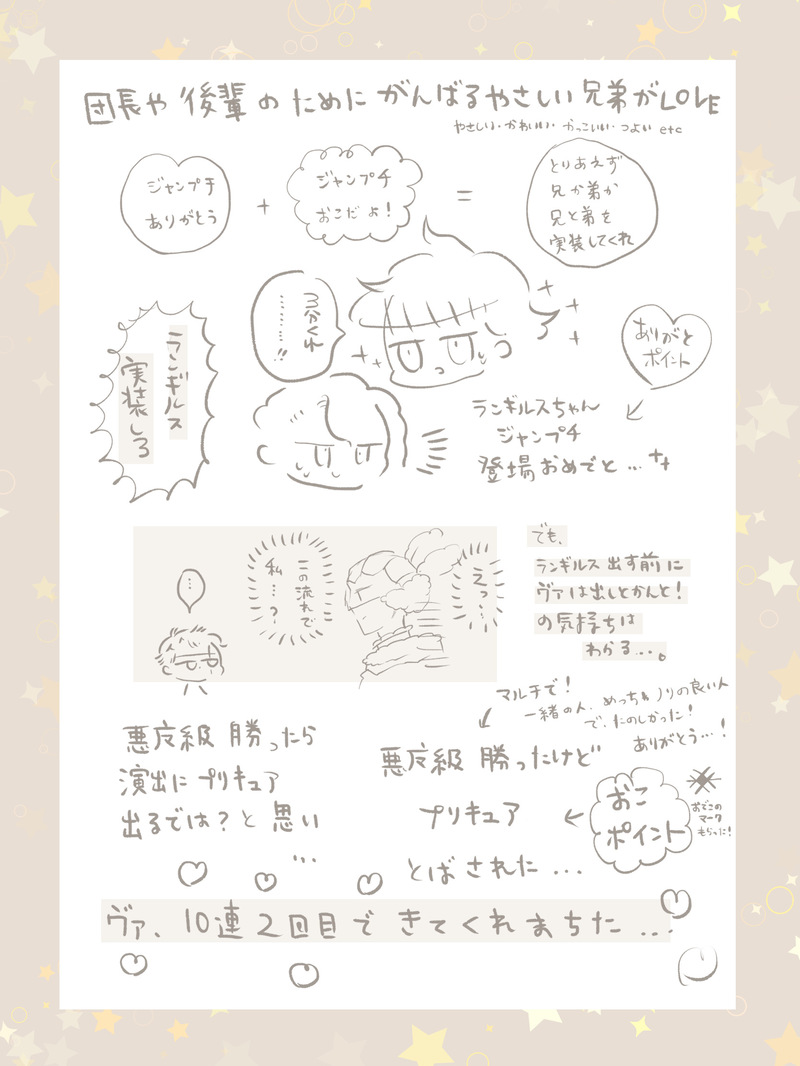 団長や後輩のためにがんばるやさしい兄弟がLOVE
やさしい・かわいい・かっこいい・つよい etc
ジャンプチ
ありがとう
+
ジャンプチ
おこだよ！
=
とりあえず
兄か弟か
兄と弟を
実装してくれ
3分くれ
………!!
ランギルス
実装しろ
ありがと
ポイント
ランギルスちゃん
ジャンプチ
登場おめでと…
でも、
ランギルス出す前に
ヴァは出しとかんと！
の気持ちは
わかる…。
えっ…
この流れで
私…？
…
マルチで！
一緒の人、めっちゃノリの良い人
で、たのしかった！
ありがとう…！
悪反級 勝ったら
演出にプリキュア
出るでは？と思い
…
悪反級 勝ったけど
プリキュア
とばされた…
おこ
ポイント
おでこの
マーク
もらった！
ヴァ、10連2回目できてくれまちた…